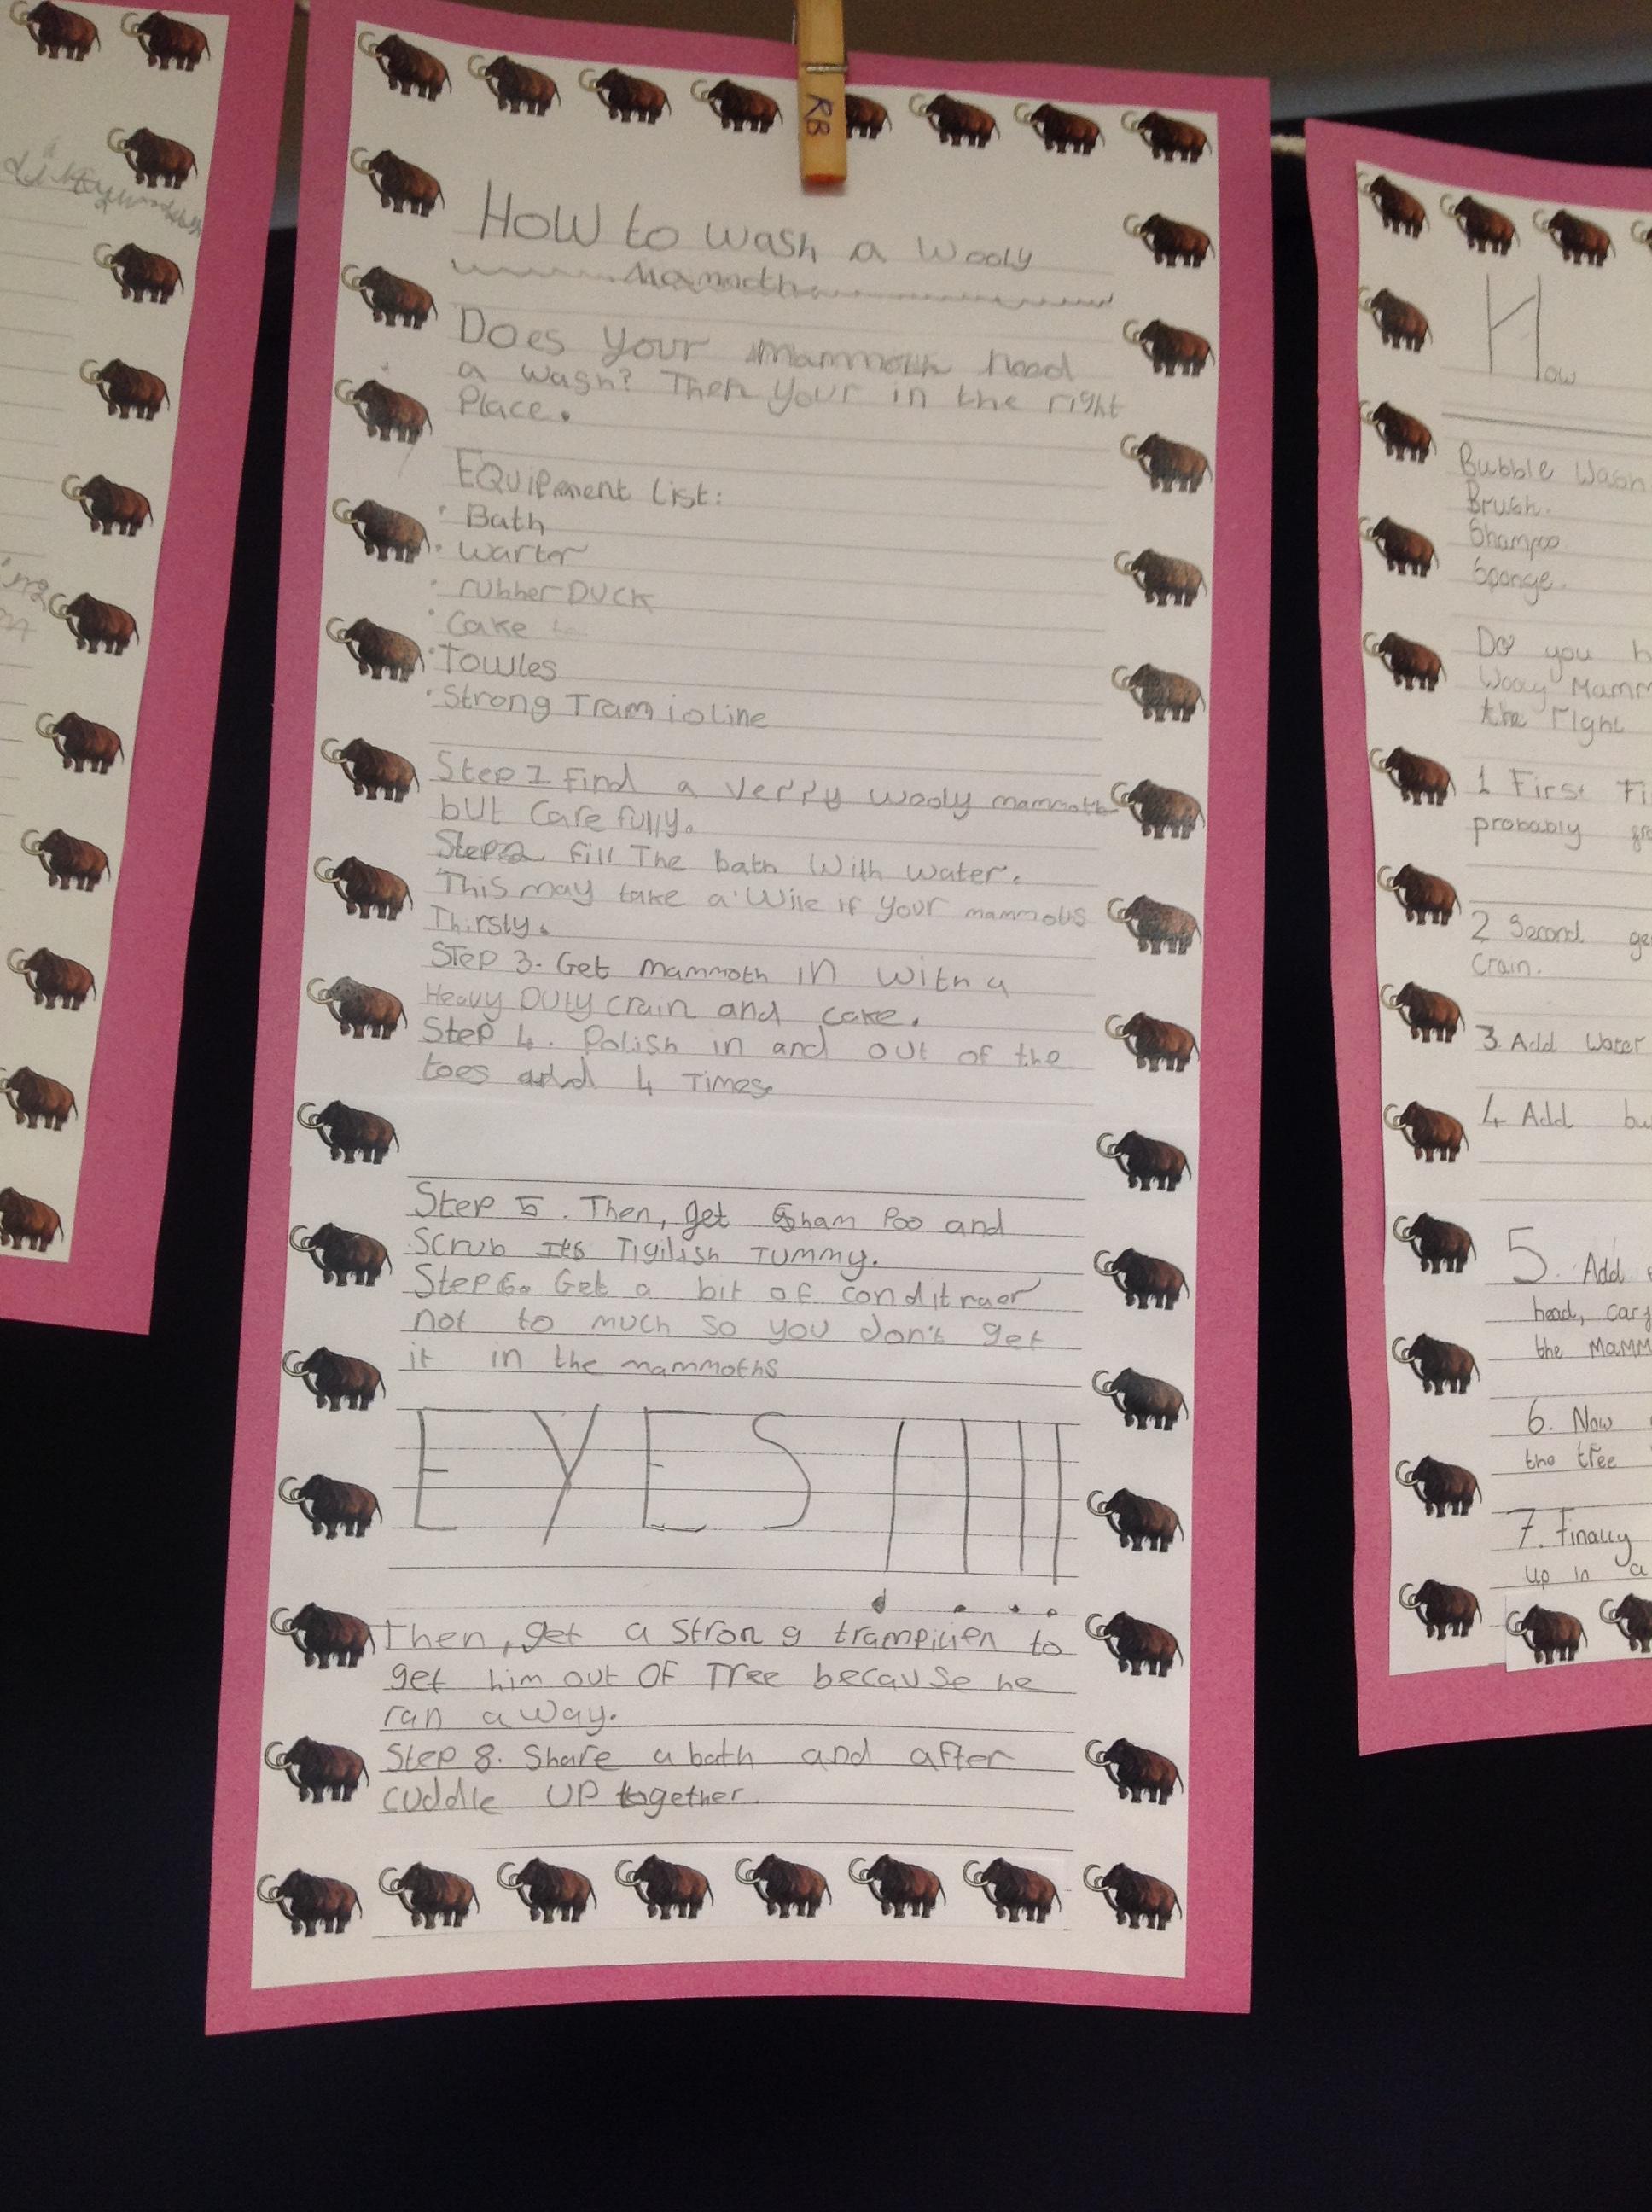 RB
HOW to wash a Wooly
Mammoth
Does your mammoth need
a wash? Then your in the right
Place.
EQUipment List:
• Bath
• warter
• rubber DUCK
• Cake
• Towles
• Strong Tramioline
Step 1 find a verry wooly mammoth
but carefully.
Step 2 fill The bath With water.
This may take a wile if your mammoths
Thirsty.
Step 3. Get mammoth in with a
Heavy DUty crain and cake.
Step 4. Polish in and out of the
toes and 4 Times
Step 5. Then, get Sham Poo and
Scrub its Tigilish Tummy.
Step 6. Get a bit of
not to much so you don't get
it in the mammoths
EYES !!!!
Then, get a strong to
get him out OF Tree because he
ran away.
Step 8. Share a bath and after
cuddle UP together.
How
Bubble Wash
Brush.
Shampoo
Sponge.
Do you
Wooly
the right
1 First
probably
2 Second
Crain.
3. Add Water
4 Add
5. Add
head,
the
6. Now
the tree
7. Finally
up in a